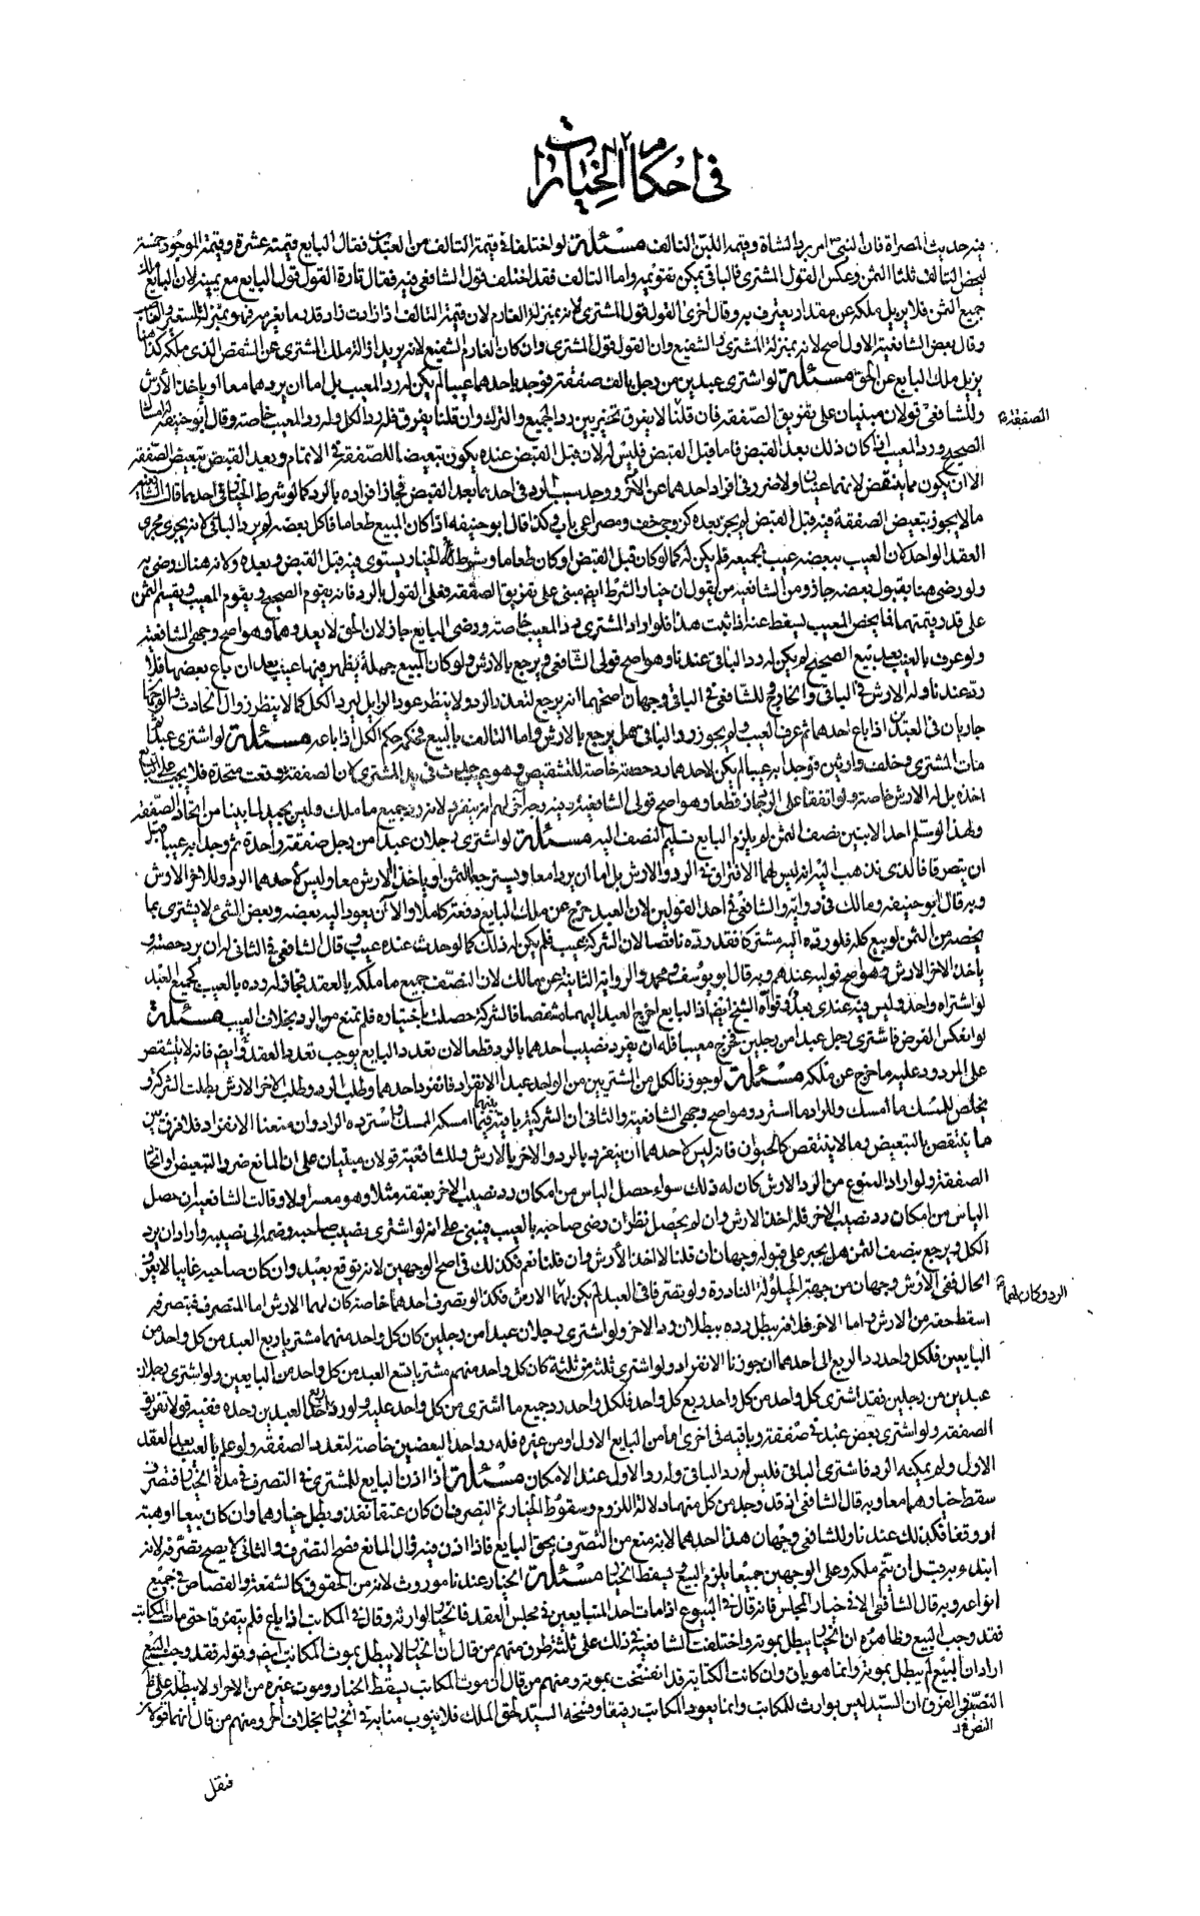 في احكام الخيارات
فيه حديث المصراة فان النبي ص امر برد الشاة وقيمة اللبن التالف مسئلة لو اختلفا في قيمة التالف من العبدين فقال البايع قيمته عشرة وقيمة الموجود خمسة
ليحصل التالف ثلثا الثمن وعكس القول المشتري فالباقي يمكن تقويمه واما التالف فقد اختلف قول الشافعي فيه فقال تارة القول قول البايع مع يمينه لان البايع ملك
جميع الثمن فلا يزيل ملكه عن مقدار يعترف به وقال اخرى القول قول المشتري لانه بمنزلة الغارم لان قيمة التالف اذا زادت زاد قدر ما يغرمه فهو بمنزلة المستعير والغاصب
وقال بعض الشافعية الاول اصح لانه بمنزلة المشتري والشفيع وان القول قول المشتري وان كان الغارم الشفيع لانه يريد ازالة ملك المشتري عن الشقص الذي ملكه كذا هنا
يزيل ملك البايع عن الحق مسئلة لو اشترى عبدين من رجل بالف صفقة فوجد باحدهما عيبا لم يكن له رد المعيب بل اما ان يردهما معا او ياخذ الأرش
وللشافعي قولان مبنيان على تفريق الصفقة فان قلنا لا يفرق تخير بين رد الجميع والترك وان قلنا يفرق فله رد الكل وله رد المعيب خاصة وقال ابو حنيفة له امساك
الصفقة
الصحيح ورد المعيب اذا كان ذلك بعد القبض فاما قبل القبض فليس له لان قبل القبض عنده يكون تبعيضا للصفقة في الاتمام وبعد القبض تبعيض الصفقة
الا ان يكون مما ينقص لانهما عينان ولا ضرر في افراد احدهما عن الاخر ووجد سبب الرد في احدهما بعد القبض فجاز افراده بالرد كما لو شرط الخيار في احدهما قال الشافعي
ما لا يجوز تبعيض الصفقة فيه قبل القبض لم يجز بعده كزوجي خف ومصراعي باب وكذا قال ابو حنيفة اذا كان المبيع طعاما فاكل بعضه لو يرد الباقي لانه يجري مجرى
العقد الواحد كان العيب ببعضه عيب بجميعه فلم يكن له كما لو كان قبل القبض او كان طعاما وشرط الخيار يستوى فيه قبل القبض وبعده ولانه هناك رضي به
ولو رضي هنا بقبول بعضه جاز ومن الشافعية من يقول ان خيار الشرط ايضا مبني على تفريق الصفقة فعلى القول بالرد فانه يقوم الصحيح ويقوم المعيب ويقسم الثمن
على قدر قيمتهما فما يخص المعيب يسقط عنه اذا ثبت هذا فلو اراد المشتري رد المعيب خاصة ورضي البايع جاز لان الحق لا يعدوهما وهو اصح وجهي الشافعية
ولو عرف بالعيب بعد بيع الصحيح لم يكن له رد الباقي عندنا وهو اصح قولي الشافعي ويرجع بالارش ولو كان المبيع جملة يظهر فيها عيب بعد ان باع بعضها فلا
رد عندنا وله الارش في الباقي والخارج وللشافعي في الباقي وجهان اصحهما انه يرجع لتعذر الرد ولا ينتظر عود الزايل ليرد الكل كما لا ينتظر زوال الحادث والوجهان
جاريان في العبدين اذا باع احدهما ثم عرف العيب ولم يجوز رد الباقي هل يرجع بالارش واما التالف بالبيع فحكمه حكم الكل اذا باعه مسئلة لو اشترى عبدا
فمات المشتري وخلف وارثين فوجدا به عيبا لم يكن لاحدهما رد حصته خاصة للتشقيص وهو عيب حدث في يد المشتري كان الصفقة وقعت متحدة فلا يجب على البايع
اخذه بل له الارش خاصة ولو اتفقا على الرد جاز قطعا وهو اصح قولي الشافعية وفيه وجه اخر لهم انه ينفرد لانه رد جميع ما ملك وليس بجيد لما بينا من اتحاد الصفقة
ولهذا لو سلم احد الابنين نصف الثمن لم يلزم البايع تسليم النصف اليه مسئلة لو اشترى رجلان عبدا من رجل صفقة واحدة ثم وجدا به عيبا قبل
ان يتصرفا فالذي نذهب اليه انه ليس لهما الافتراق في الرد والارش بل اما ان يردا معا ويسترجعا الثمن او ياخذا الارش معا وليس لاحدهما الرد وللاخر الارش
وبه قال ابو حنيفة ومالك في رواية والشافعي في احد القولين لان العبد خرج عن ملك البايع دفعة كاملا والآن يعود اليه بعضه وبعض الشئ لا يشترى بما
يخصه من الثمن لو بيع كله فلو رده اليه مشتركا فقد رده ناقصا لان الشركة عيب فلم يكن له ذلك كما لو حدث عنده عيب وقال الشافعي في الثاني له ان يرد حصته و
ياخذ الاخر الارش وهو اصح قوليه عندهم وبه قال ابو يوسف ومحمد والرواية الثانية عن مالك لان النصف جميع ما ملكه بالعقد فجاز له رده بالعيب كجميع العبد
لو اشتراه واحد وليس فيه عندي بعد وقواه الشيخ ايضا اذ البايع اخرج العبد اليهما مشقصا فالشركة حصلت باختياره فلم يمنع من الرد بخلاف العيب مسئلة
لو انعكس الفرض فاشترى رجل عبدا من رجلين فخرج معيبا فله ان يفرد نصيب احدهما بالرد قطعا لان تعدد البايع يوجب تعدد العقد وايضا فانه لا يتشقص
على المردود عليه ما خرج عن ملكه مسئلة لو جوزنا لكل من المشتريين من الواحد عبدا الانفراد فانفرد احدهما وطلب الرد وطلب الاخر الارش بطلت الشركة و
يخلص للممسك ما امسك وللراد ما استرد وهو اصح وجهي الشافعية والثاني ان الشركة باقية بينهما فيما امسكه الممسك واسترده الراد وان منعنا الانفراد فلا فرق بين
ما ينتقص بالتبعيض وما لا ينتقص كالحبوب فانه ليس لاحدهما ان ينفرد بالرد والاخر بالارش وللشافعية قولان مبنيان على ان المانع ضرر التبعيض او اتحاد
الصفقة ولو اراد الممنوع من الرد الارش كان له ذلك سواء حصل الياس من امكان رد نصيب الاخر بعتقه مثلا وهو معسر اولا وقالت الشافعية ان حصل
الياس من امكان رد نصيب الاخر فله اخذ الارش وان لم يحصل نظر ان رضي صاحبه بالعيب فيبنى على انه لو اشترى نصيب صاحبه وضمه الى نصيبه واراد ان يرد
الكل ويرجع بنصف الثمن هل يجبر على قبوله وجهان ان قلنا لا اخذ الأرش وان قلنا نعم فكذلك في اصح الوجهين لانه توقع بعيد وان كان صاحبه غايبا لا يعرف
الحال ففي الارش وجهان من جهة الحيلولة النادرة ولو تصرفا في العبد لم يكن لهما الارش فكذا لو تصرف احدهما خاصة كان لهما الارش اما المتصرف فبتصرفه
الرد وكان لهما
اسقط حقه من الارش واما الاخر فلانه يبطل رده ببطلان رد الاخر ولو اشترى رجلان عبدا من رجلين كان كل واحد منهما مشتريا ربع العبد من كل واحد من
البايعين فلكل واحد رد الربع الى احدهما ان جوزنا الانفراد ولو اشترى ثلثة من ثلثة كان كل واحد منهم مشتريا تسع العبد من كل واحد من البايعين ولو اشترى رجلان
عبدين من رجلين فقد اشترى كل واحد من كل واحد ربع كل واحد فلكل واحد رد جميع ما اشترى من كل واحد عليه ولو رد ربع احد العبدين وحده ففيه قولا تفريق
الصفقة ولو اشترى بعض عبد في صفقة وباقيه في اخرى اما من البايع الاول او من غيره فله رد احد البعضين خاصة لتعدد الصفقة ولو علم بالعيب بعد العقد
الاول ولم يمكنه الرد فاشترى الباقي فليس له رد الباقي وله رد الاول عند الامكان مسئلة اذا اذن البايع للمشتري في التصرف في مدة الخيار فتصرف
سقط خيارهما معا وبه قال الشافعي اذ قد وجد من كل منهما دلالة اللزوم وسقوط الخيار ثم التصرف ان كان عتقا نفذ وبطل خيارهما وان كان بيعا او هبة
او وقفا فكذلك عندنا وللشافعي وجهان هذا احدهما لانه منع من التصرف بحق البايع فاذا اذن فيه زال المانع فصح التصرف والثاني لا يصح تصرفه لانه
ابتدء به قبل ان يتم ملكه وعلى الوجهين جميعا يلزم البيع ويسقط الخيار مسئلة الخيار عندنا موروث لانه من الحقوق كالشفعة والقصاص في جميع
انواعه وبه قال الشافعي الا في خيار المجلس فانه قال في البيوع اذا مات احد المتبايعين في مجلس العقد فالخيار لوارثه وقال في المكاتب اذا باع فلم يتفرقا حتى مات المكاتب
فقد وجب البيع وظاهره ان الخيار يبطل بموته واختلفت الشافعية في ذلك على ثلثة طرق منهم من قال ان الخيار لا يبطل بموت المكاتب ايضا وقوله فقد وجب البيع
اراد ان البيع لم يبطل بموته وانما هو باق وان كانت الكتابة قد انفسخت بموته ومنهم من قال ان موت المكاتب يسقط الخيار وموت غيره من الاحرار لا يبطله على ظاهر
النصين والفرق ان السيد ليس بوارث للمكاتب وانما يعود المكاتب رقيقا وفسخه السيد لحق الملك فلا ينوب منابه في الخيار بخلاف الحر ومنهم من قال انهما قولان
النص
فنقل